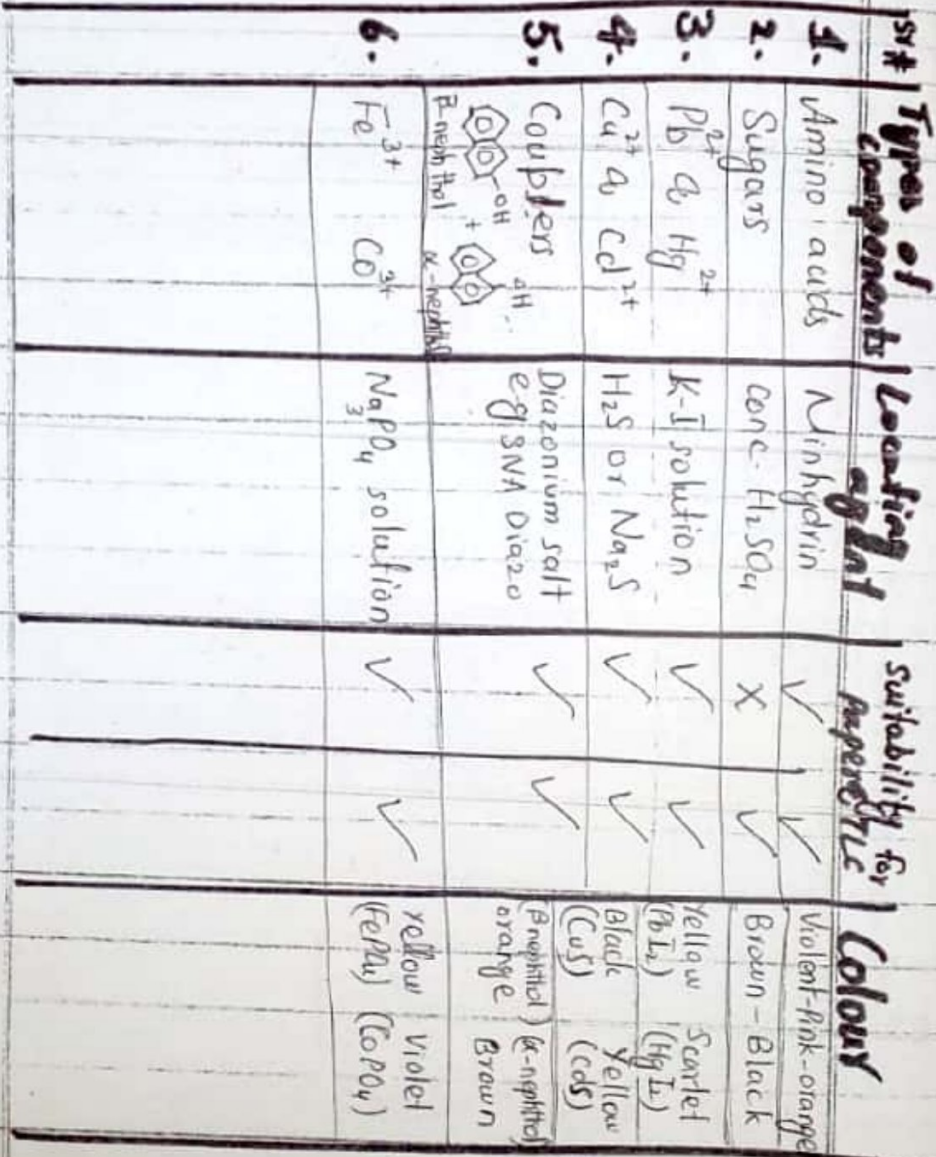 Sr# Types of components Locating agent suitability for paper TLC Colour
1. Amino acids Ninhydrin ✓ ✓ Violent-Pink-orange
2. Sugars conc. H₂SO₄ x ✓ Brown-Black
3. Pb²⁺ & Hg²⁺ K-I solution ✓ ✓ Yellow (PbI₂) Scarlet (HgI₂)
4. Cu²⁺ & Cd²⁺ H₂S or Na₂S ✓ ✓ Black (CuS) Yellow (CdS)
5. Couplers OH + OH B-nephthol α-nephthol Diazonium salt eg: 3NA Diazo ✓ ✓ (B nephthol) orange (α-nephthol) Brown
6. Fe³⁺ Co³⁺ Na₃PO₄ solution ✓ ✓ Yellow (FePO₄) Violet (CoPO₄)